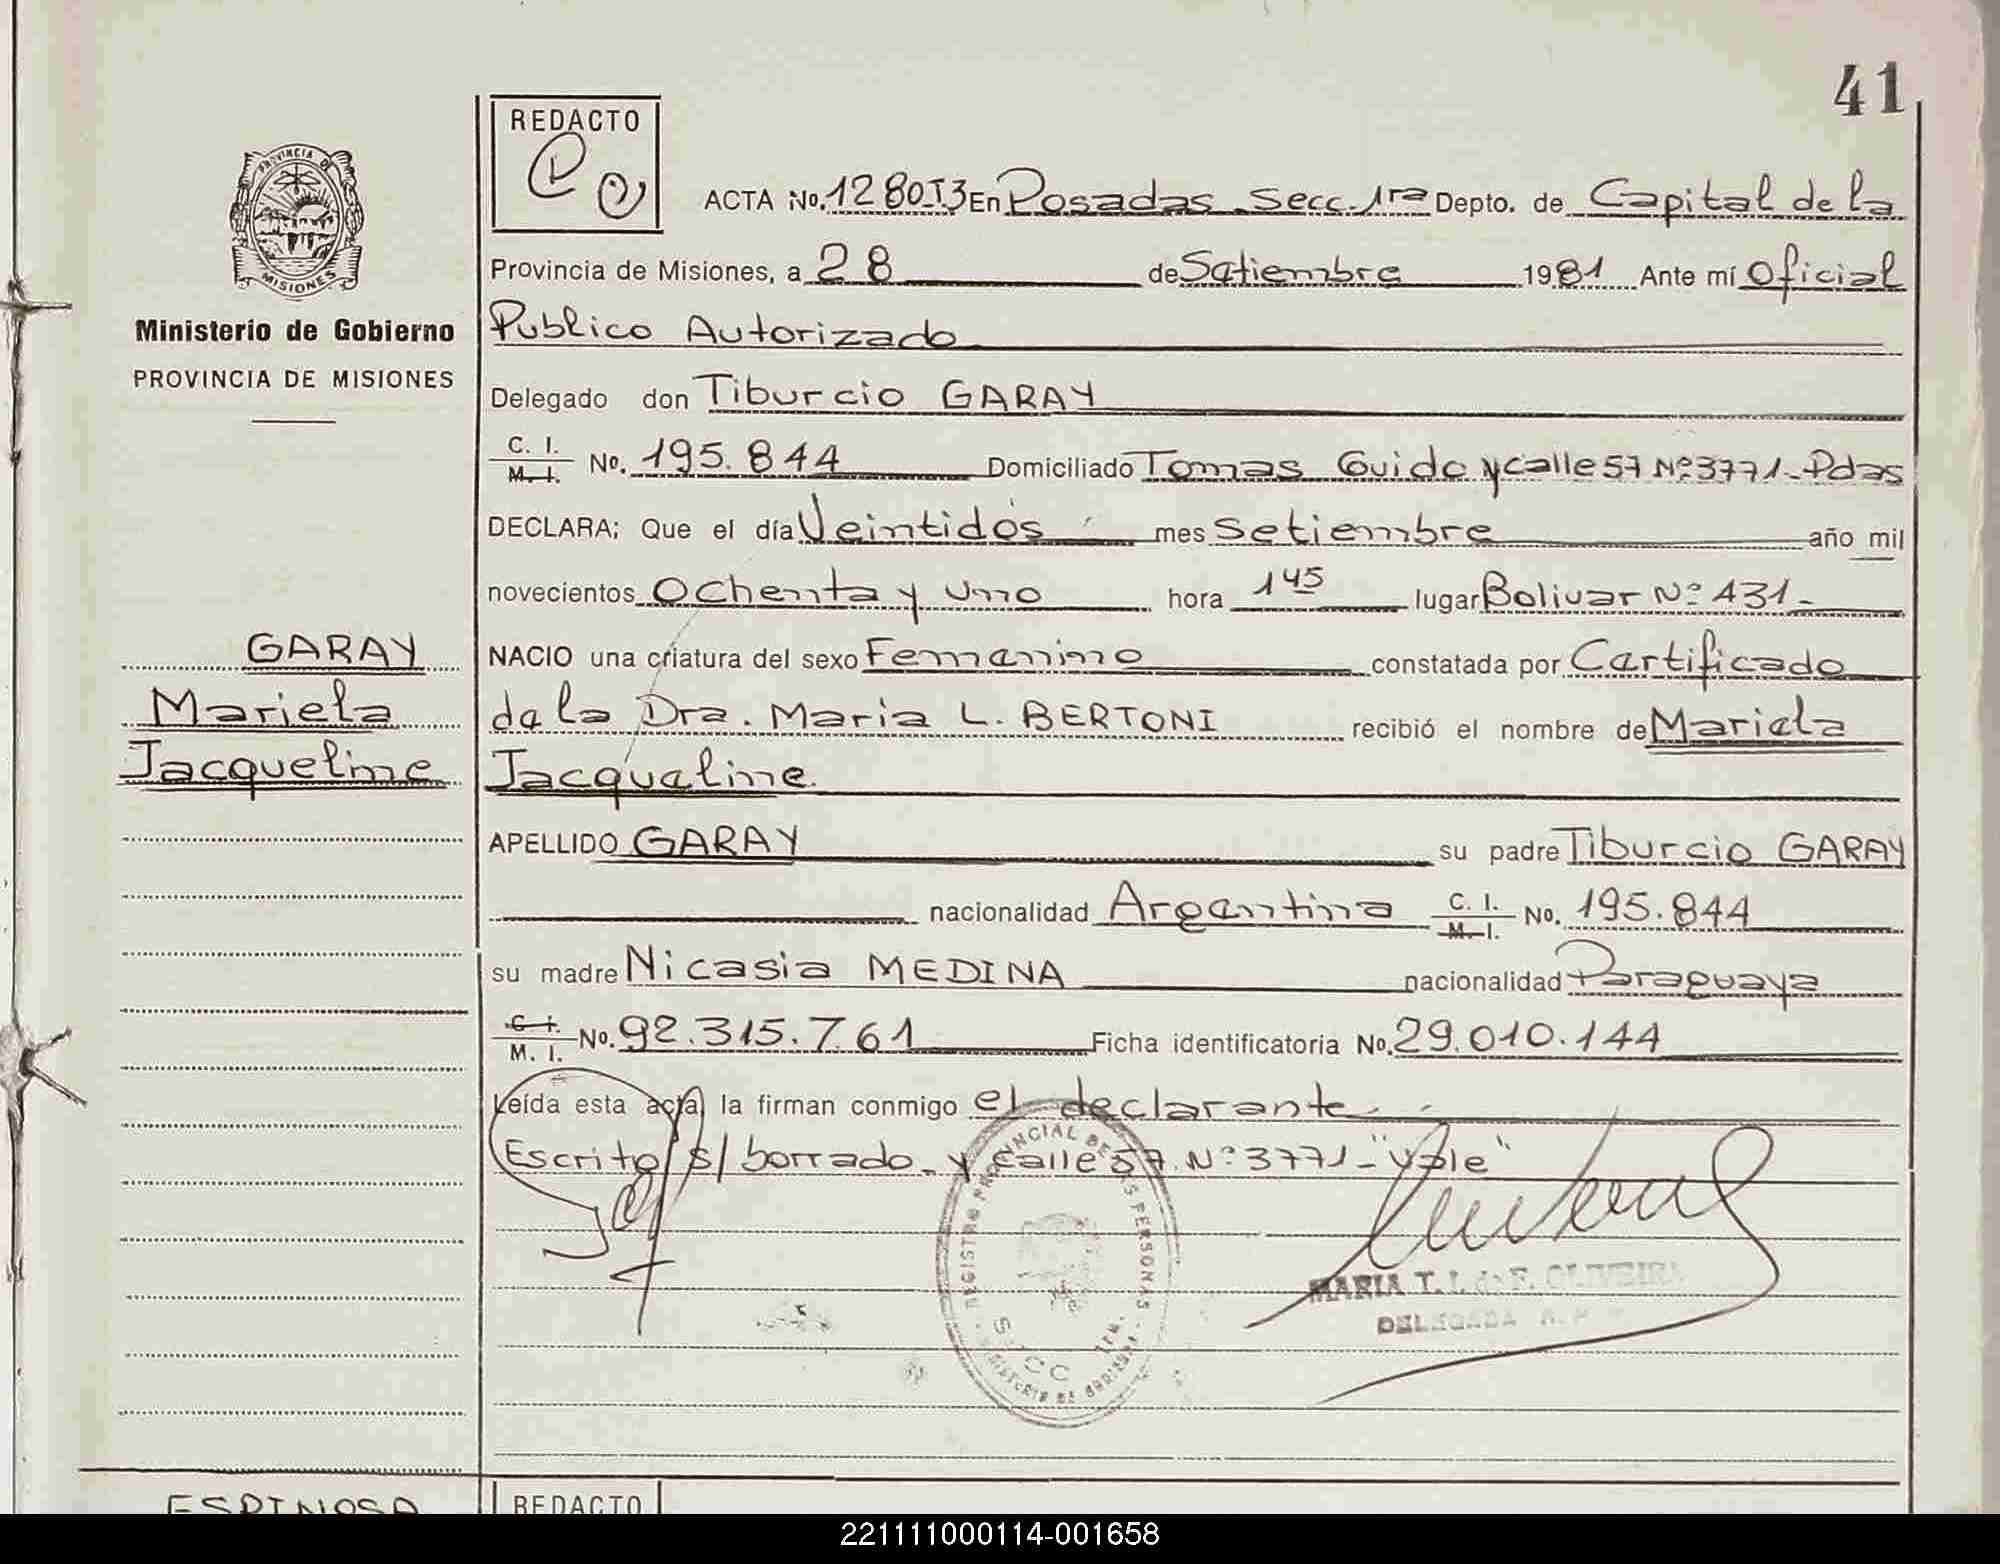 41
REDACTO
PROVINCIA DE
MISIONES
ACTA No. 1280I3 En Posadas Secc. 1ra Depto. de Capital de la
Provincia de Misiones, a 28 de Setiembre 1981 Ante mí Oficial
Publico Autorizado
Ministerio de Gobierno
PROVINCIA DE MISIONES
Delegado don Tiburcio GARAY
C. I. M. I. No. 195.844 Domiciliado Tomas Guido y calle 57 Nº 3771-Pdas
DECLARA; Que el día Veintidós mes Setiembre año mil
novecientos Ochenta y uno hora 1 45 lugar Bolivar Nº 431-
NACIO una criatura del sexo Femenino constatada por Certificado
de la Dra. Maria L. BERTONI recibió el nombre de Mariela
Jacqueline.
GARAY
Mariela
Jacqueline
APELLIDO GARAY su padre Tiburcio GARAY
nacionalidad Argentina C. I. M. I. No. 195.844
su madre Nicasia MEDINA nacionalidad Paraguaya
C. I. M. I. No. 92.315.761 Ficha identificatoria No. 29.010.144
Leída esta acta, la firman conmigo el declarante.
Escrito s/ borrado - y calle 57. Nº 3771 - "Vale"
REGISTRO PROVINCIAL DE LAS PERSONAS
SECC 1ra.
MARIA T. I. de F. OLIVEIRA
DELEGADA
ESPINOSA
REDACTO
221111000114-001658